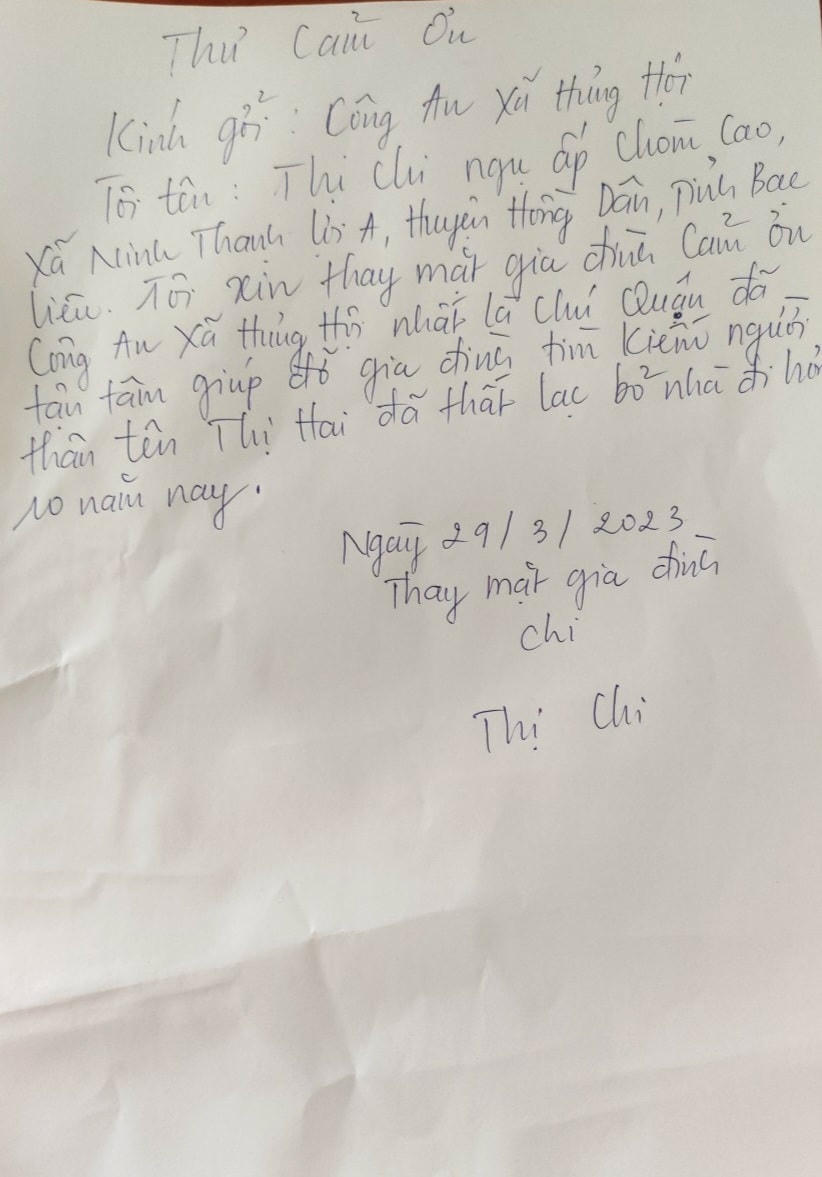 Thư Cảm Ơn
Kính gởi : Công An Xã Hưng Hội
Tôi tên : Thị Chi ngụ ấp Chòm Cao,
Xã Ninh Thạnh Lợi A, Huyện Hồng Dân, Tỉnh Bạc
Liêu. Tôi xin thay mặt gia đình Cảm ơn
Công An Xã Hưng Hội nhất là Chú Quận đã
tận tâm giúp đỡ gia đình tìm Kiếm người
thân tên Thị Hai đã thất lạc bỏ nhà đi hơn
10 năm nay.
Ngày 29/3/2023
Thay mặt gia đình
Chi
Thị Chi